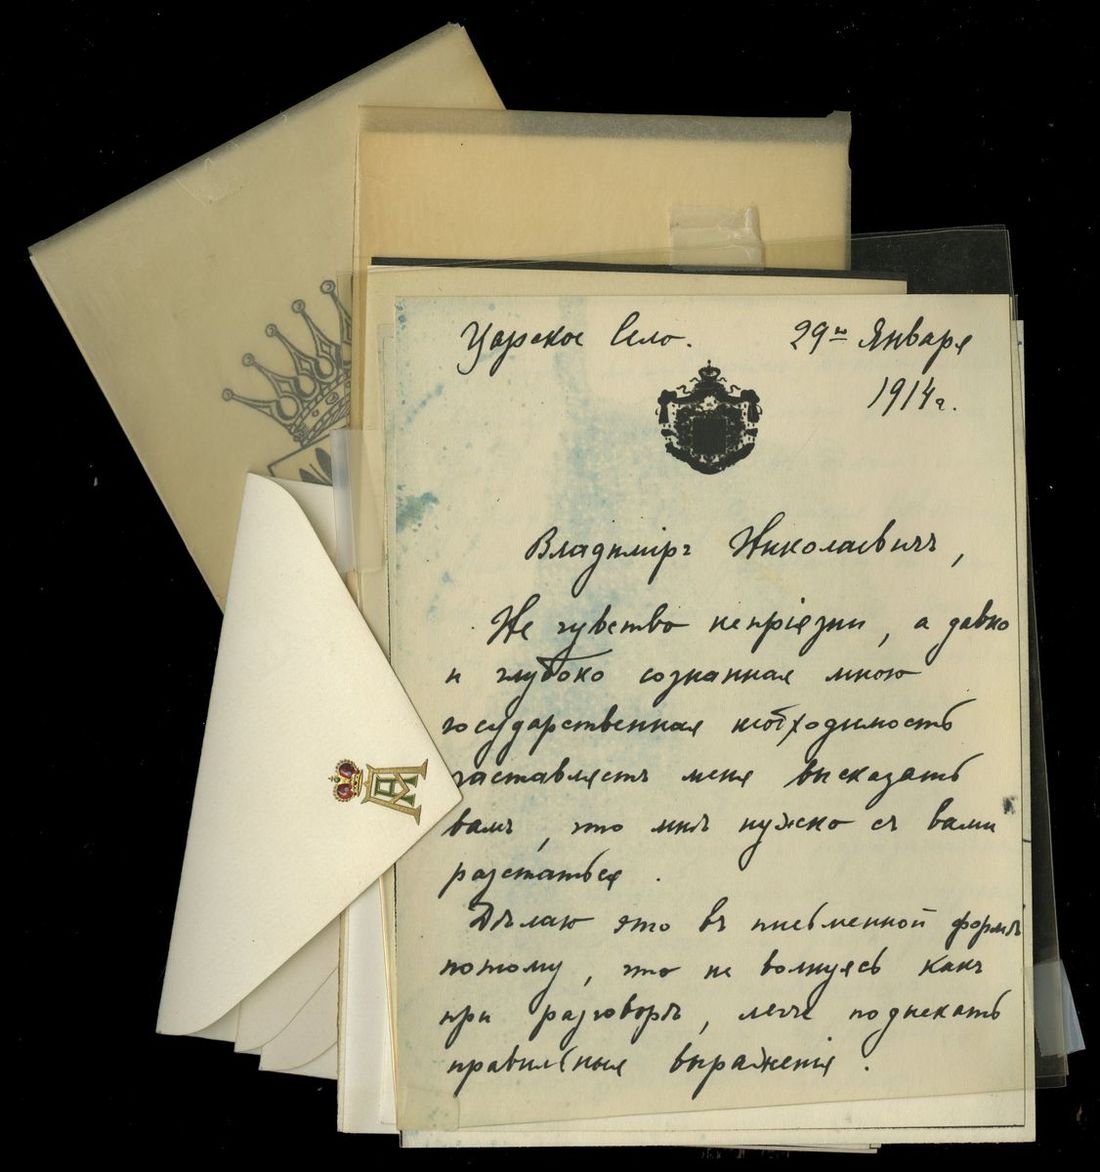 Царское Село. 29го Января
1914 г.
Владиміръ Николаевичъ,
Не чувство непріязни, а давно
и глубоко сознанная мною
государственная необходимость
заставляетъ меня высказать
вамъ, что мнѣ нужно съ вами
разстаться.
Дѣлаю это въ письменной формѣ
потому, что не волнуясь какъ
при разговорѣ, легче подыскать
правильныя выраженія.